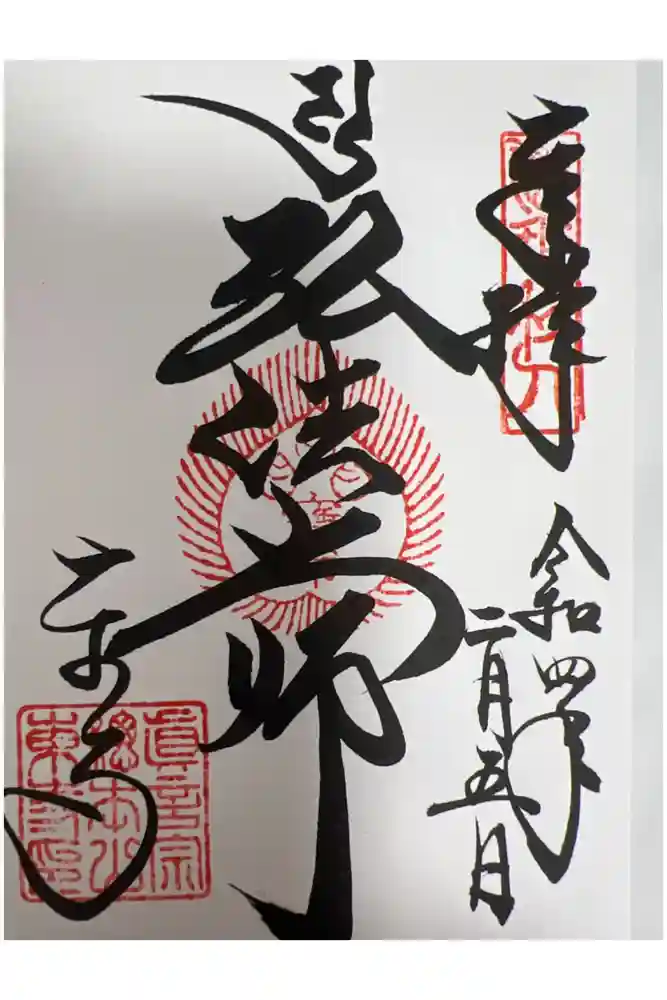 奉拝
令和四年
二月五日
弘法大師
東寺
眞言宗
總本山
東寺印